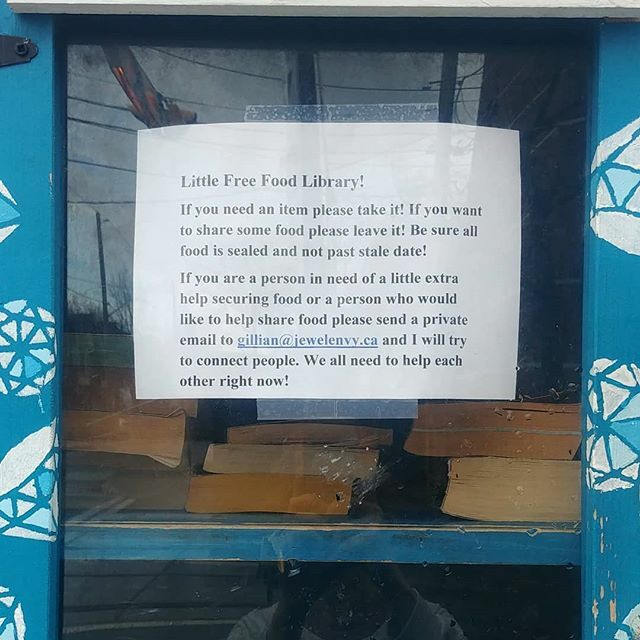 Little Free Food Library!
If you need an item please take it! If you want
to share some food please leave it! Be sure all
food is sealed and not past stale date!
If you are a person in need of a little extra
help securing food or a person who would
like to help share food please send a private
email to gillian@jewelenvy.ca and I will try
to connect people. We all need to help each
other right now!